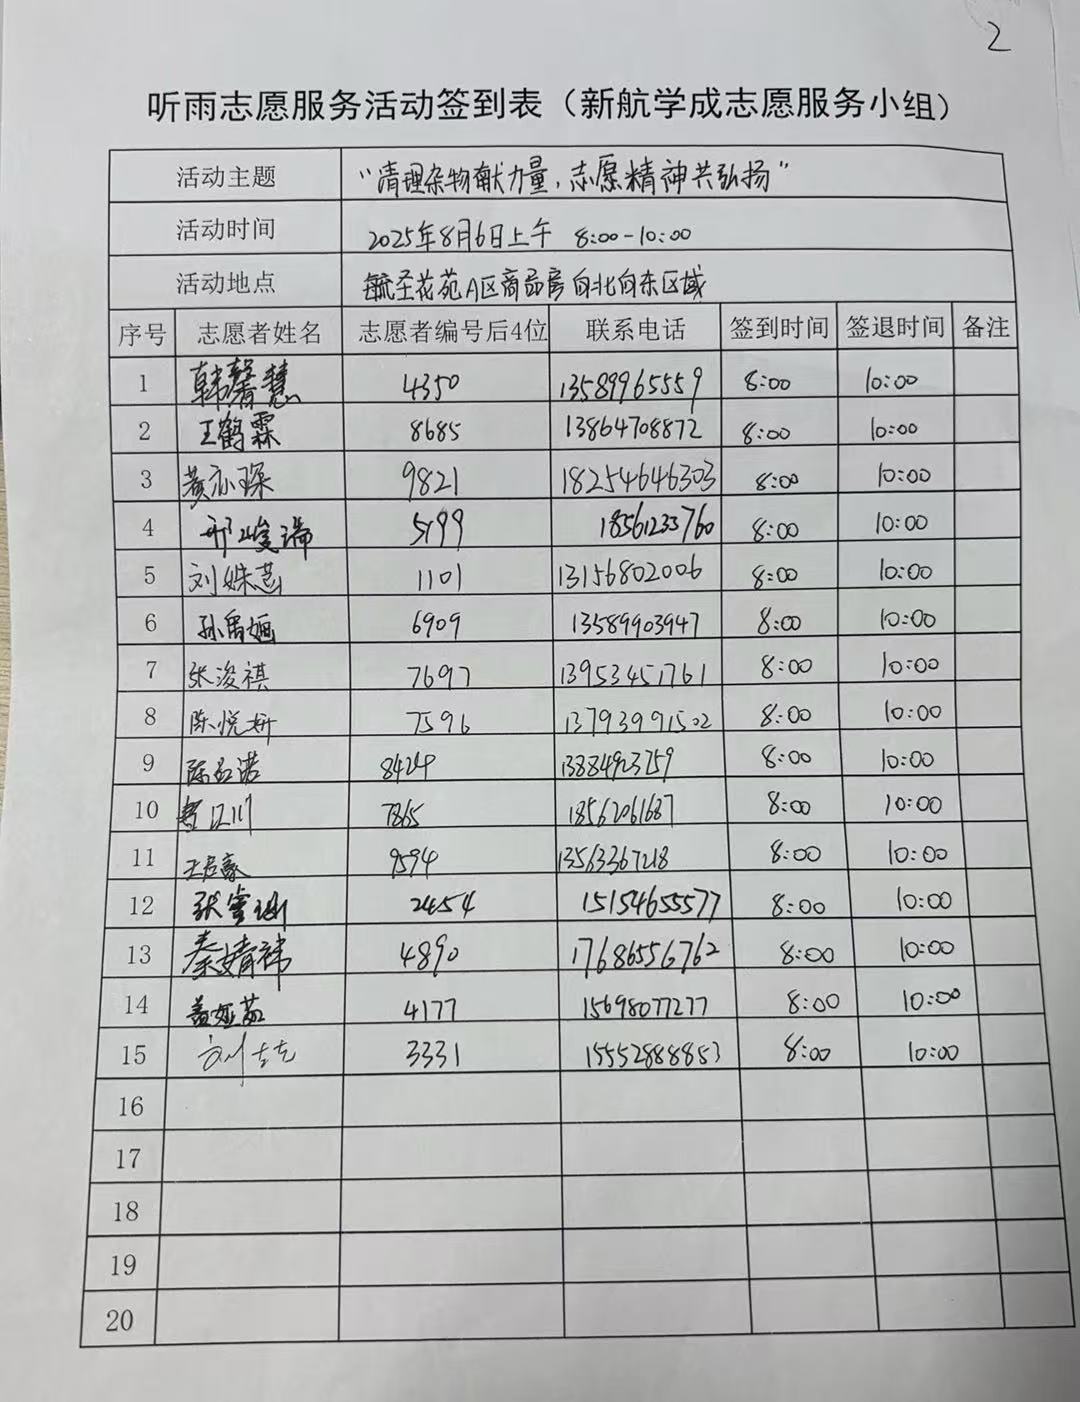 2
听雨志愿服务活动签到表（新航学成志愿服务小组）
活动主题 “清理杂物献力量，志愿精神共弘扬”
活动时间 2025年8月6日上午 8:00-10:00
活动地点 毓圣花苑A区商品房向北向东区域
序号 志愿者姓名 志愿者编号后4位 联系电话 签到时间 签退时间 备注
1 韩馨慧 4350 13589965559 8:00 10:00
2 王鹤霖 8685 13864708872 8:00 10:00
3 黄亦琛 9821 18254646303 8:00 10:00
4 邢峻瑞 5199 18561233760 8:00 10:00
5 刘姝慧 1101 13156802006 8:00 10:00
6 孙禹姮 6909 13589903947 8:00 10:00
7 张浚祺 7697 13953451761 8:00 10:00
8 陈悦妍 7596 13793991502 8:00 10:00
9 陈 诺 8424 13884923759 8:00 10:00
10 江川 7865 18562061687 8:00 10:00
11 王 豪 9594 13563367218 8:00 10:00
12 张 2454 15154655577 8:00 10:00
13 秦婧祎 4890 17686556762 8:00 10:00
14 盖娅茹 4177 15698077277 8:00 10:00
15 刘 3331 15552888853 8:00 10:00
16
17
18
19
20